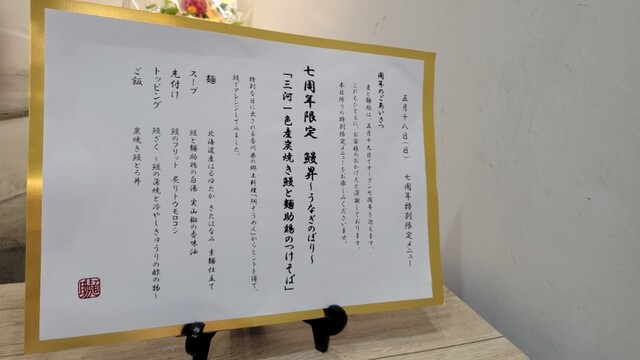 五月十八日(日) 七周年特別限定メニュー
周年のごあいさつ
麦と麺助は、五月十九日でオープン七周年を迎えます。
これもひとえに、お客様のおかげだと深謝しております。
本日限りの特別限定メニューをお楽しみくださいませ。
七周年限定 鰻昇〜うなぎのぼり〜
「三河一色産炭焼き鰻と麺助鶏のつけそば」
特別な日に出される香川県の郷土料理「鯛そうめん」からヒントを得て、
鰻でアレンジしてみました。
麺 北海道産はるゆたか きたほなみ 素麺仕立て
スープ 鰻と麺助鶏の白湯 実山椒の香味油
先付け 鰻のフリット 炙りトウモロコシ
トッピング 鰻ざく 〜鰻の蒲焼と冷やしきゅうりの酢の物〜
ご飯 炭焼き鰻とろ丼